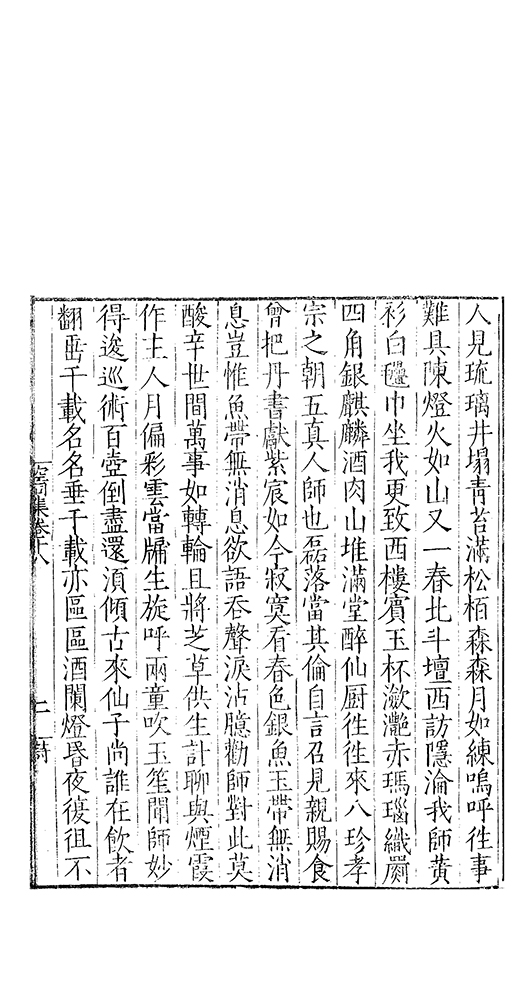 人見琉璃井塌青苔滿松栢森森月如練嗚呼徃事
難具陳燈火如山又一春北斗壇西訪隱淪我師黄
衫白㲲巾坐我更致西樓賓玉杯瀲灧赤瑪瑙織罽
四角銀麒麟酒肉山堆滿堂醉仙厨徃徃來八珍孝
宗之朝五真人師也磊落當其倫自言召見親賜食
曾把丹書獻紫宸如今寂寞看春色銀魚玉帶無消
息豈惟魚帶無消息欲語吞聲淚沾臆勸師對此莫
酸辛世間萬事如轉輪且將芝草供生計聊與煙霞
作主人月偏彩雲當牖生旋呼兩童吹玉笙聞師妙
得逡巡術百壺倒盡還湏傾古來仙子尚誰在飲者
翻畱千載名名垂千載亦區區酒闌燈昬夜復徂不
空同集卷十八
二
詩